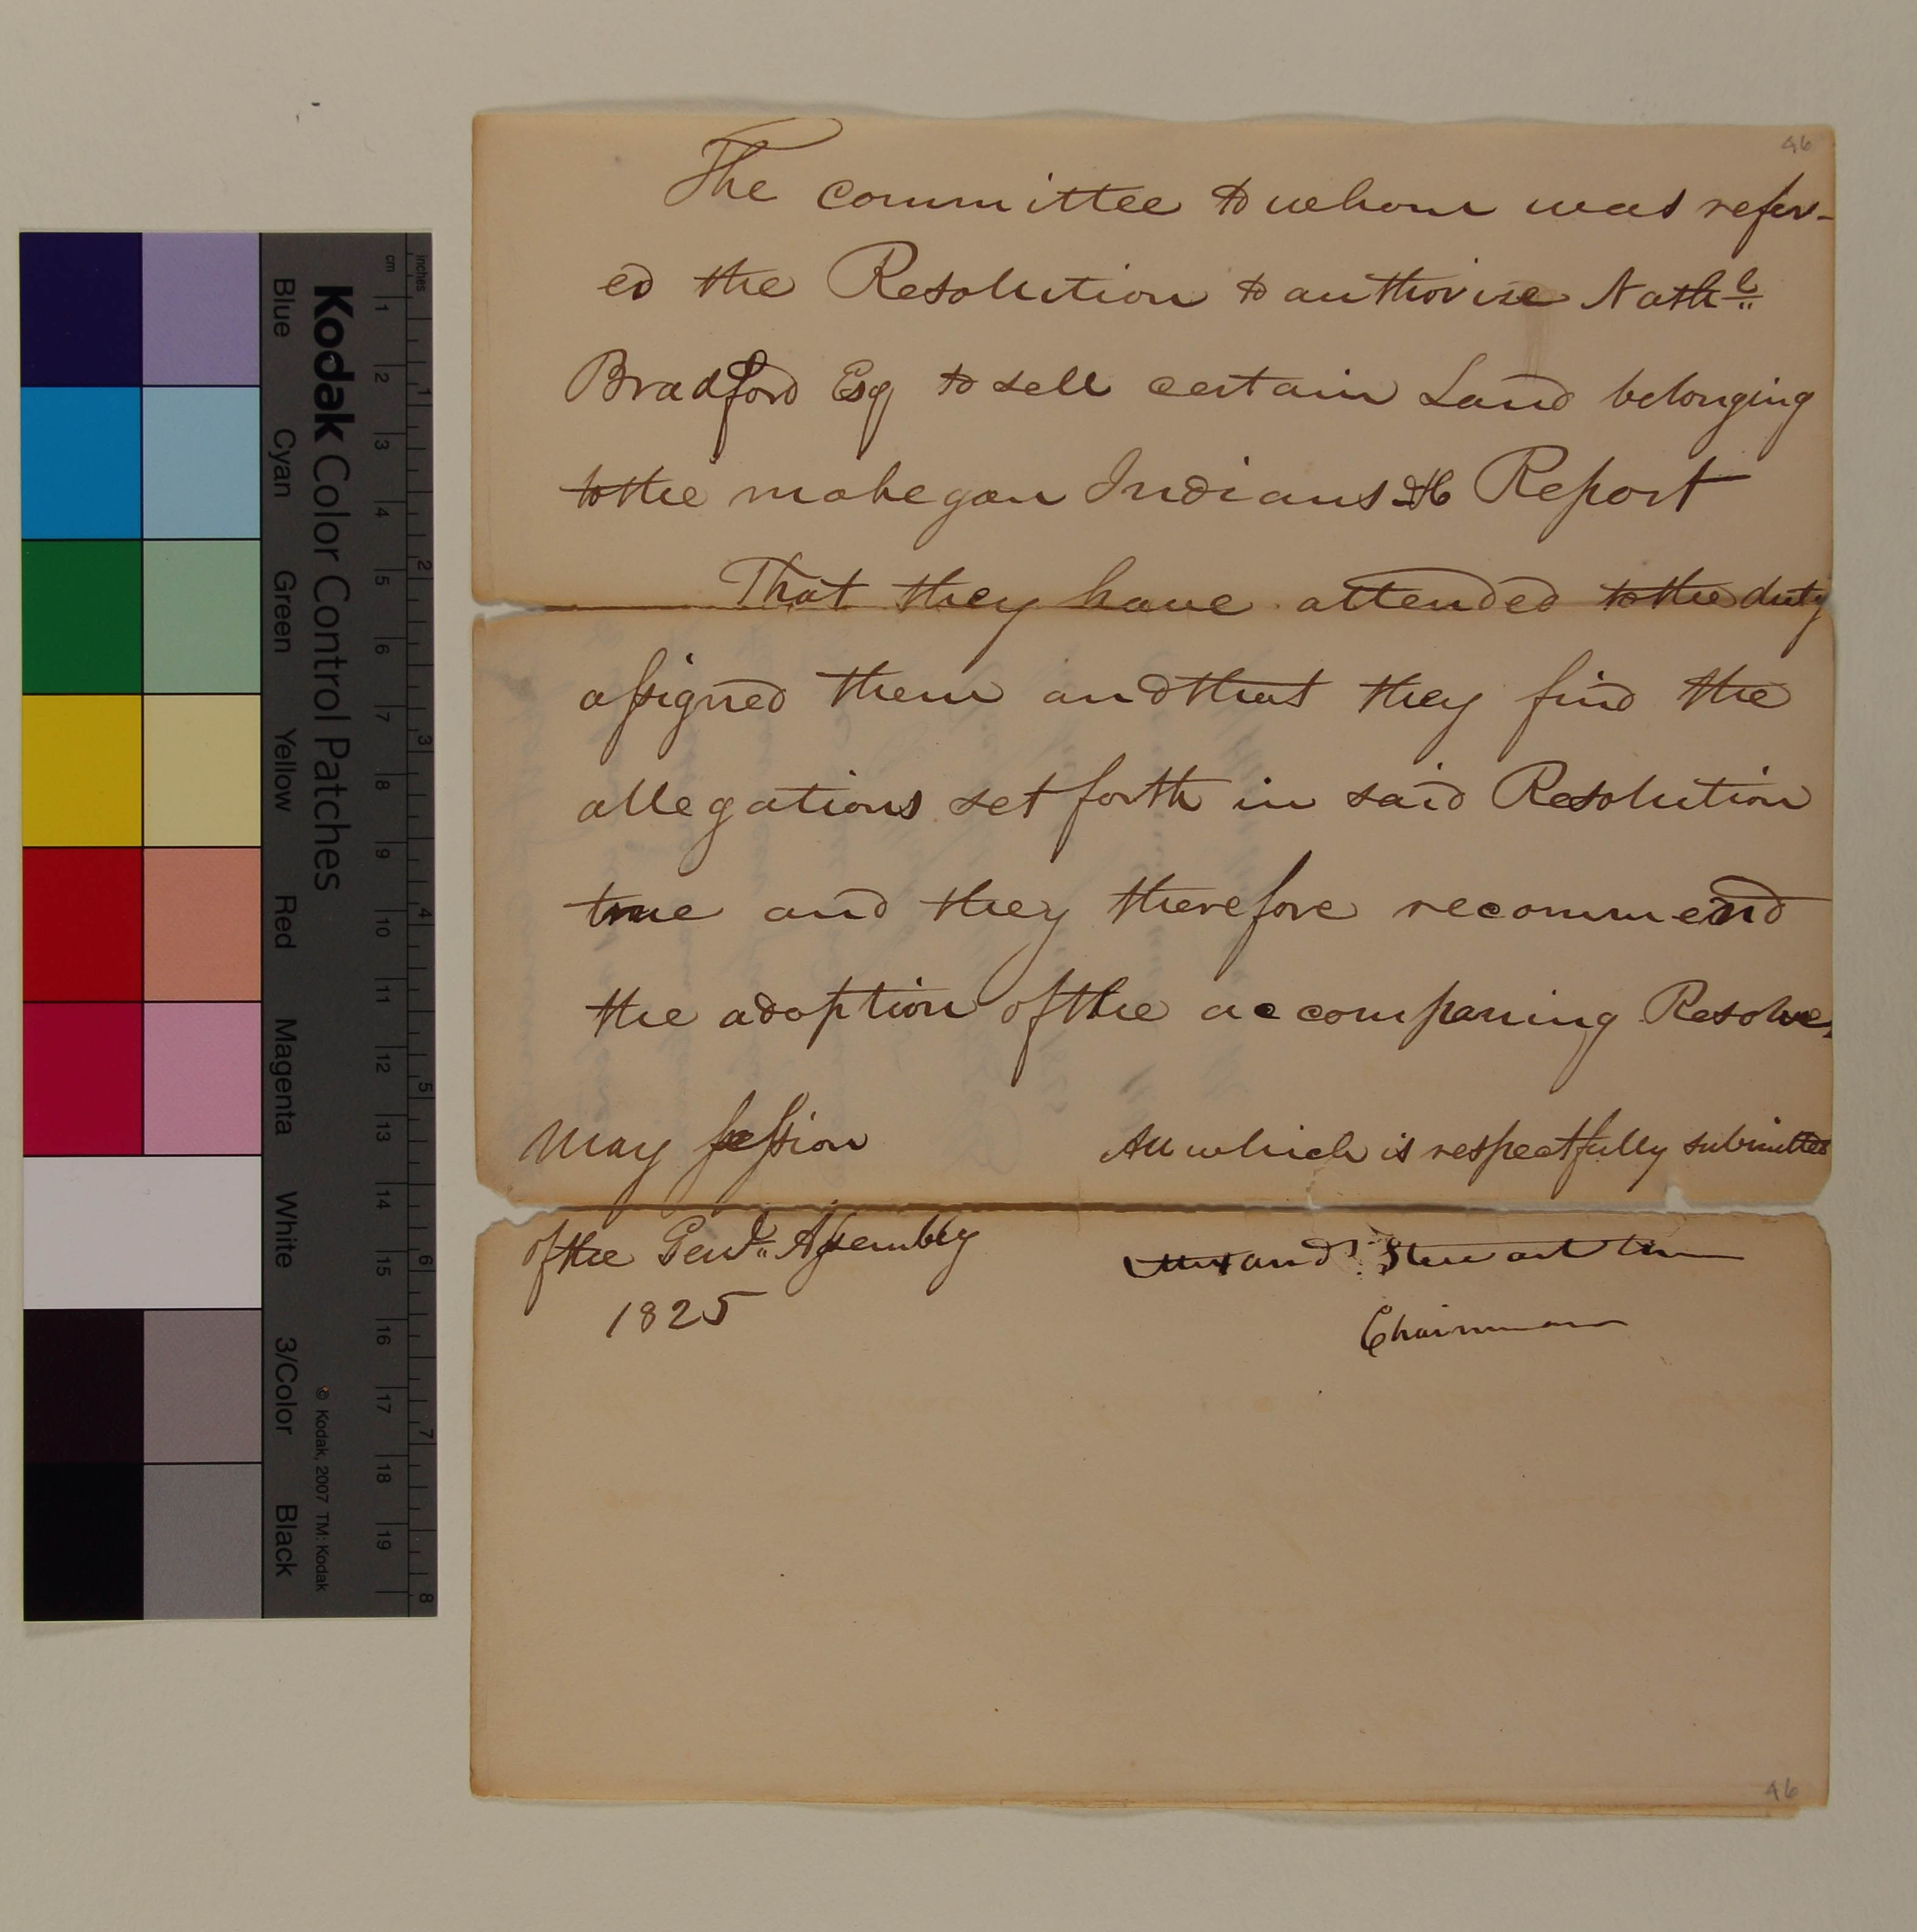 46
The committee to whom was refer-
ed the Resolution to authorise Nathl
Bradford Esq to sell certain Land belonging
to the mohegan Indians &c Report
That they have attended to the duty
assigned them and that they find the
allegations set forth in said Resolution
true and they therefore recommend
the adoption of the accompaning Resolve,
All which is respectfully submitted
May session
of the Genl Assembly
1825
Stewart
Chairman
46
Kodak Color Control Patches
Blue Cyan Green Yellow Red Magenta White 3/Color Black
© Kodak, 2007 TM: Kodak
cm 1 2 3 4 5 6 7 8 9 10 11 12 13 14 15 16 17 18 19
inches 1 2 3 4 5 6 7 8